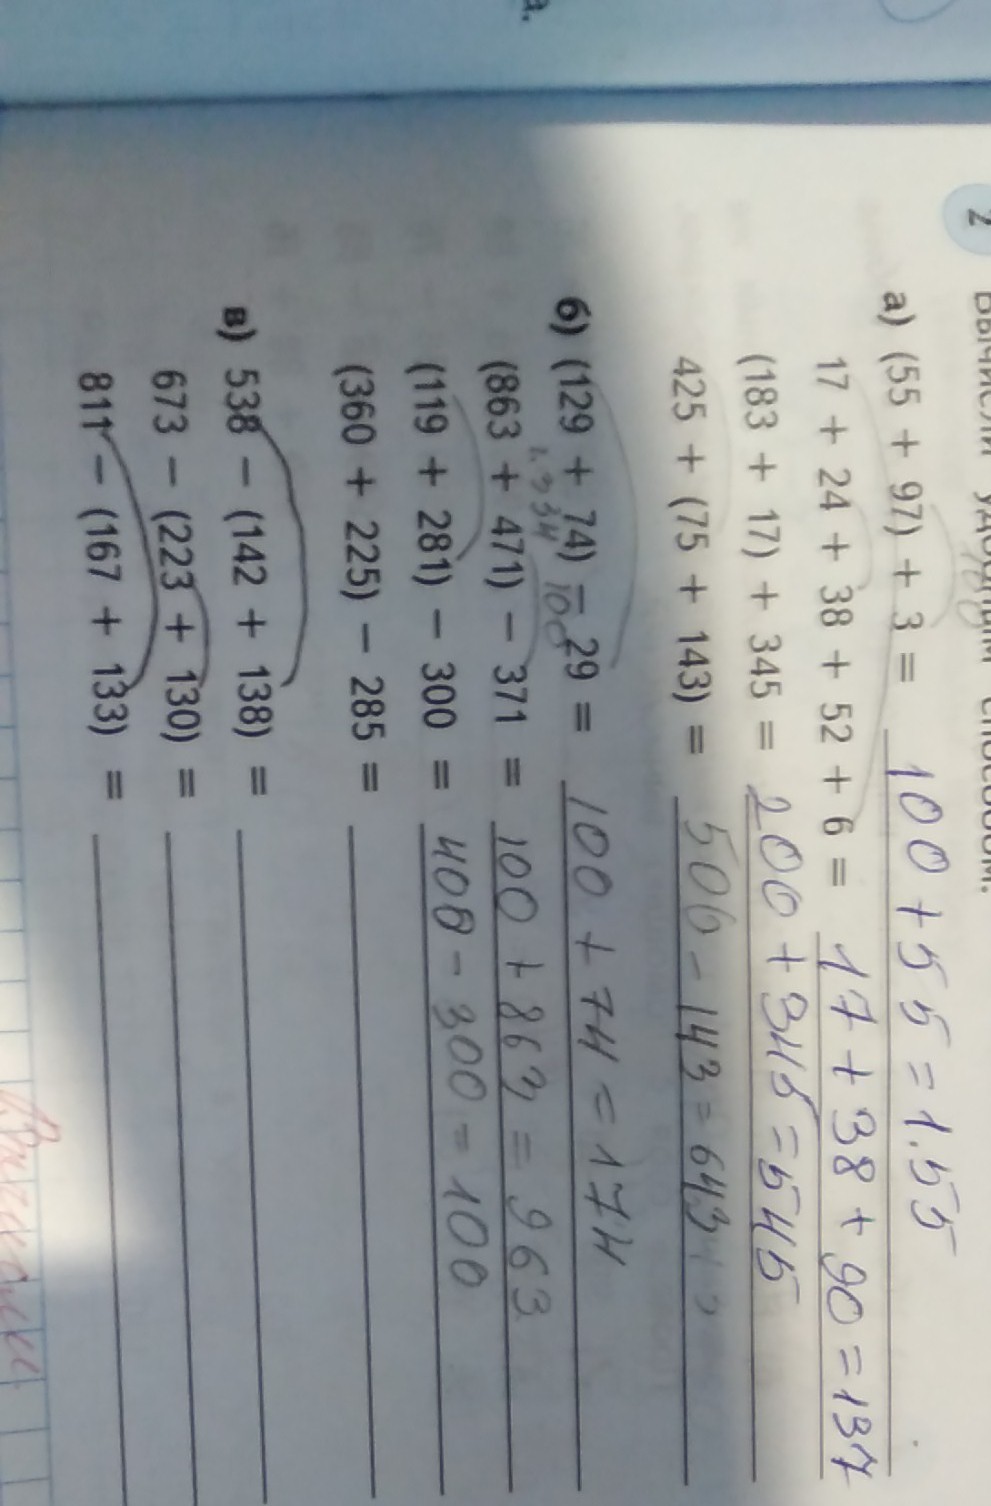 2 Вычисли удобным способом.
100
а) (55 + 97) + 3 = 100 + 55 = 1.55
17 + 24 + 38 + 52 + 6 = 17 + 38 + 90 = 137
(183 + 17) + 345 = 200 + 345 = 545
425 + (75 + 143) = 500 - 143 = 643
б) (129 + 74) - 29 = 100 + 74 = 174
1.334 100
(863 + 471) - 371 = 100 + 863 = 963
(119 + 281) - 300 = 400 - 300 = 100
(360 + 225) - 285 =
в) 538 - (142 + 138) =
673 - (223 + 130) =
811 - (167 + 133) =